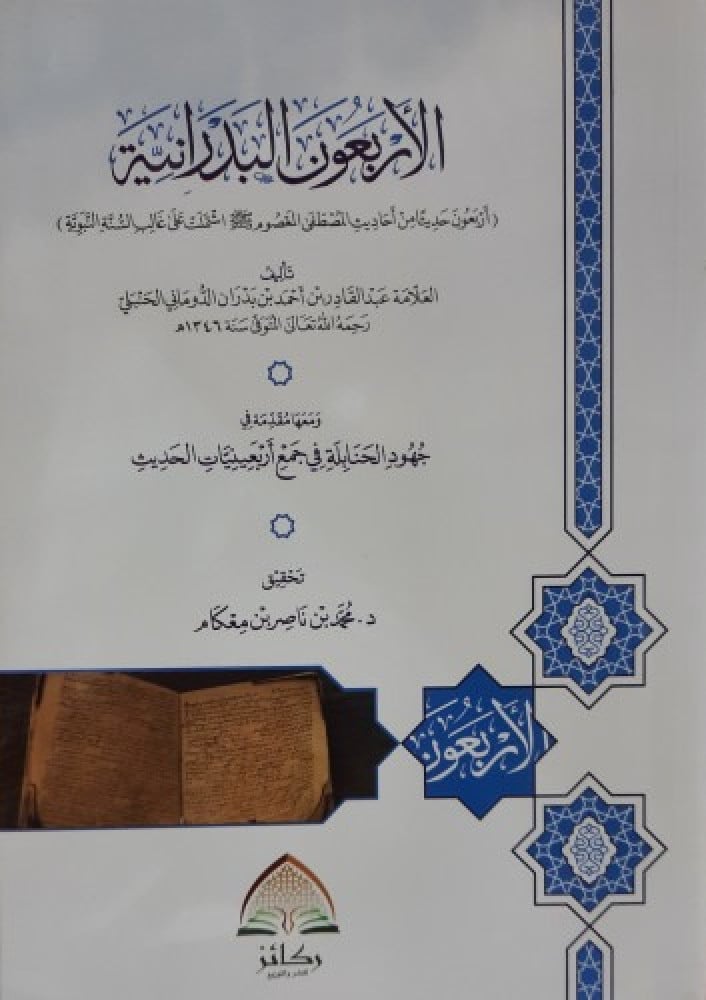 الأَرْبَعُونَ البَدْرَانِيَّة
(أَرْبَعُونَ حَدِيثًا مِنْ أَحَادِيثِ المُصْطَفَى المَعْصُومِ ﷺ اشْتَمَلَتْ عَلَى غَالِبِ السُّنَّةِ النَّبَوِيَّةِ)
تَأْلِيفُ
العَلَّامَة عَبْد القَادِر بْن أَحْمَد بْن بَدْرَان الدُّومَانِي الحَنْبَلِيّ
رَحِمَهُ اللهُ تَعَالَى المُتَوَفَّى سَنَة ١٣٤٦هـ
وَمَعَهَا مُقَدِّمَة فِي
جُهُودِ الحَنَابِلَةِ فِي جَمْعِ أَرْبَعِينِيَّاتِ الحَدِيثِ
تَحْقِيق
د. مُحَمَّد بْن نَاصِر بْن مِعْكَام
الأَرْبَعُونَ
ركائز
للنشر والتوزيع